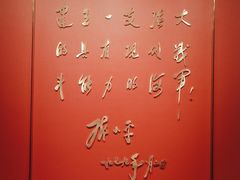 建立一支强大
的具有现代战
斗能力的海军。
邓小平
一九七九年